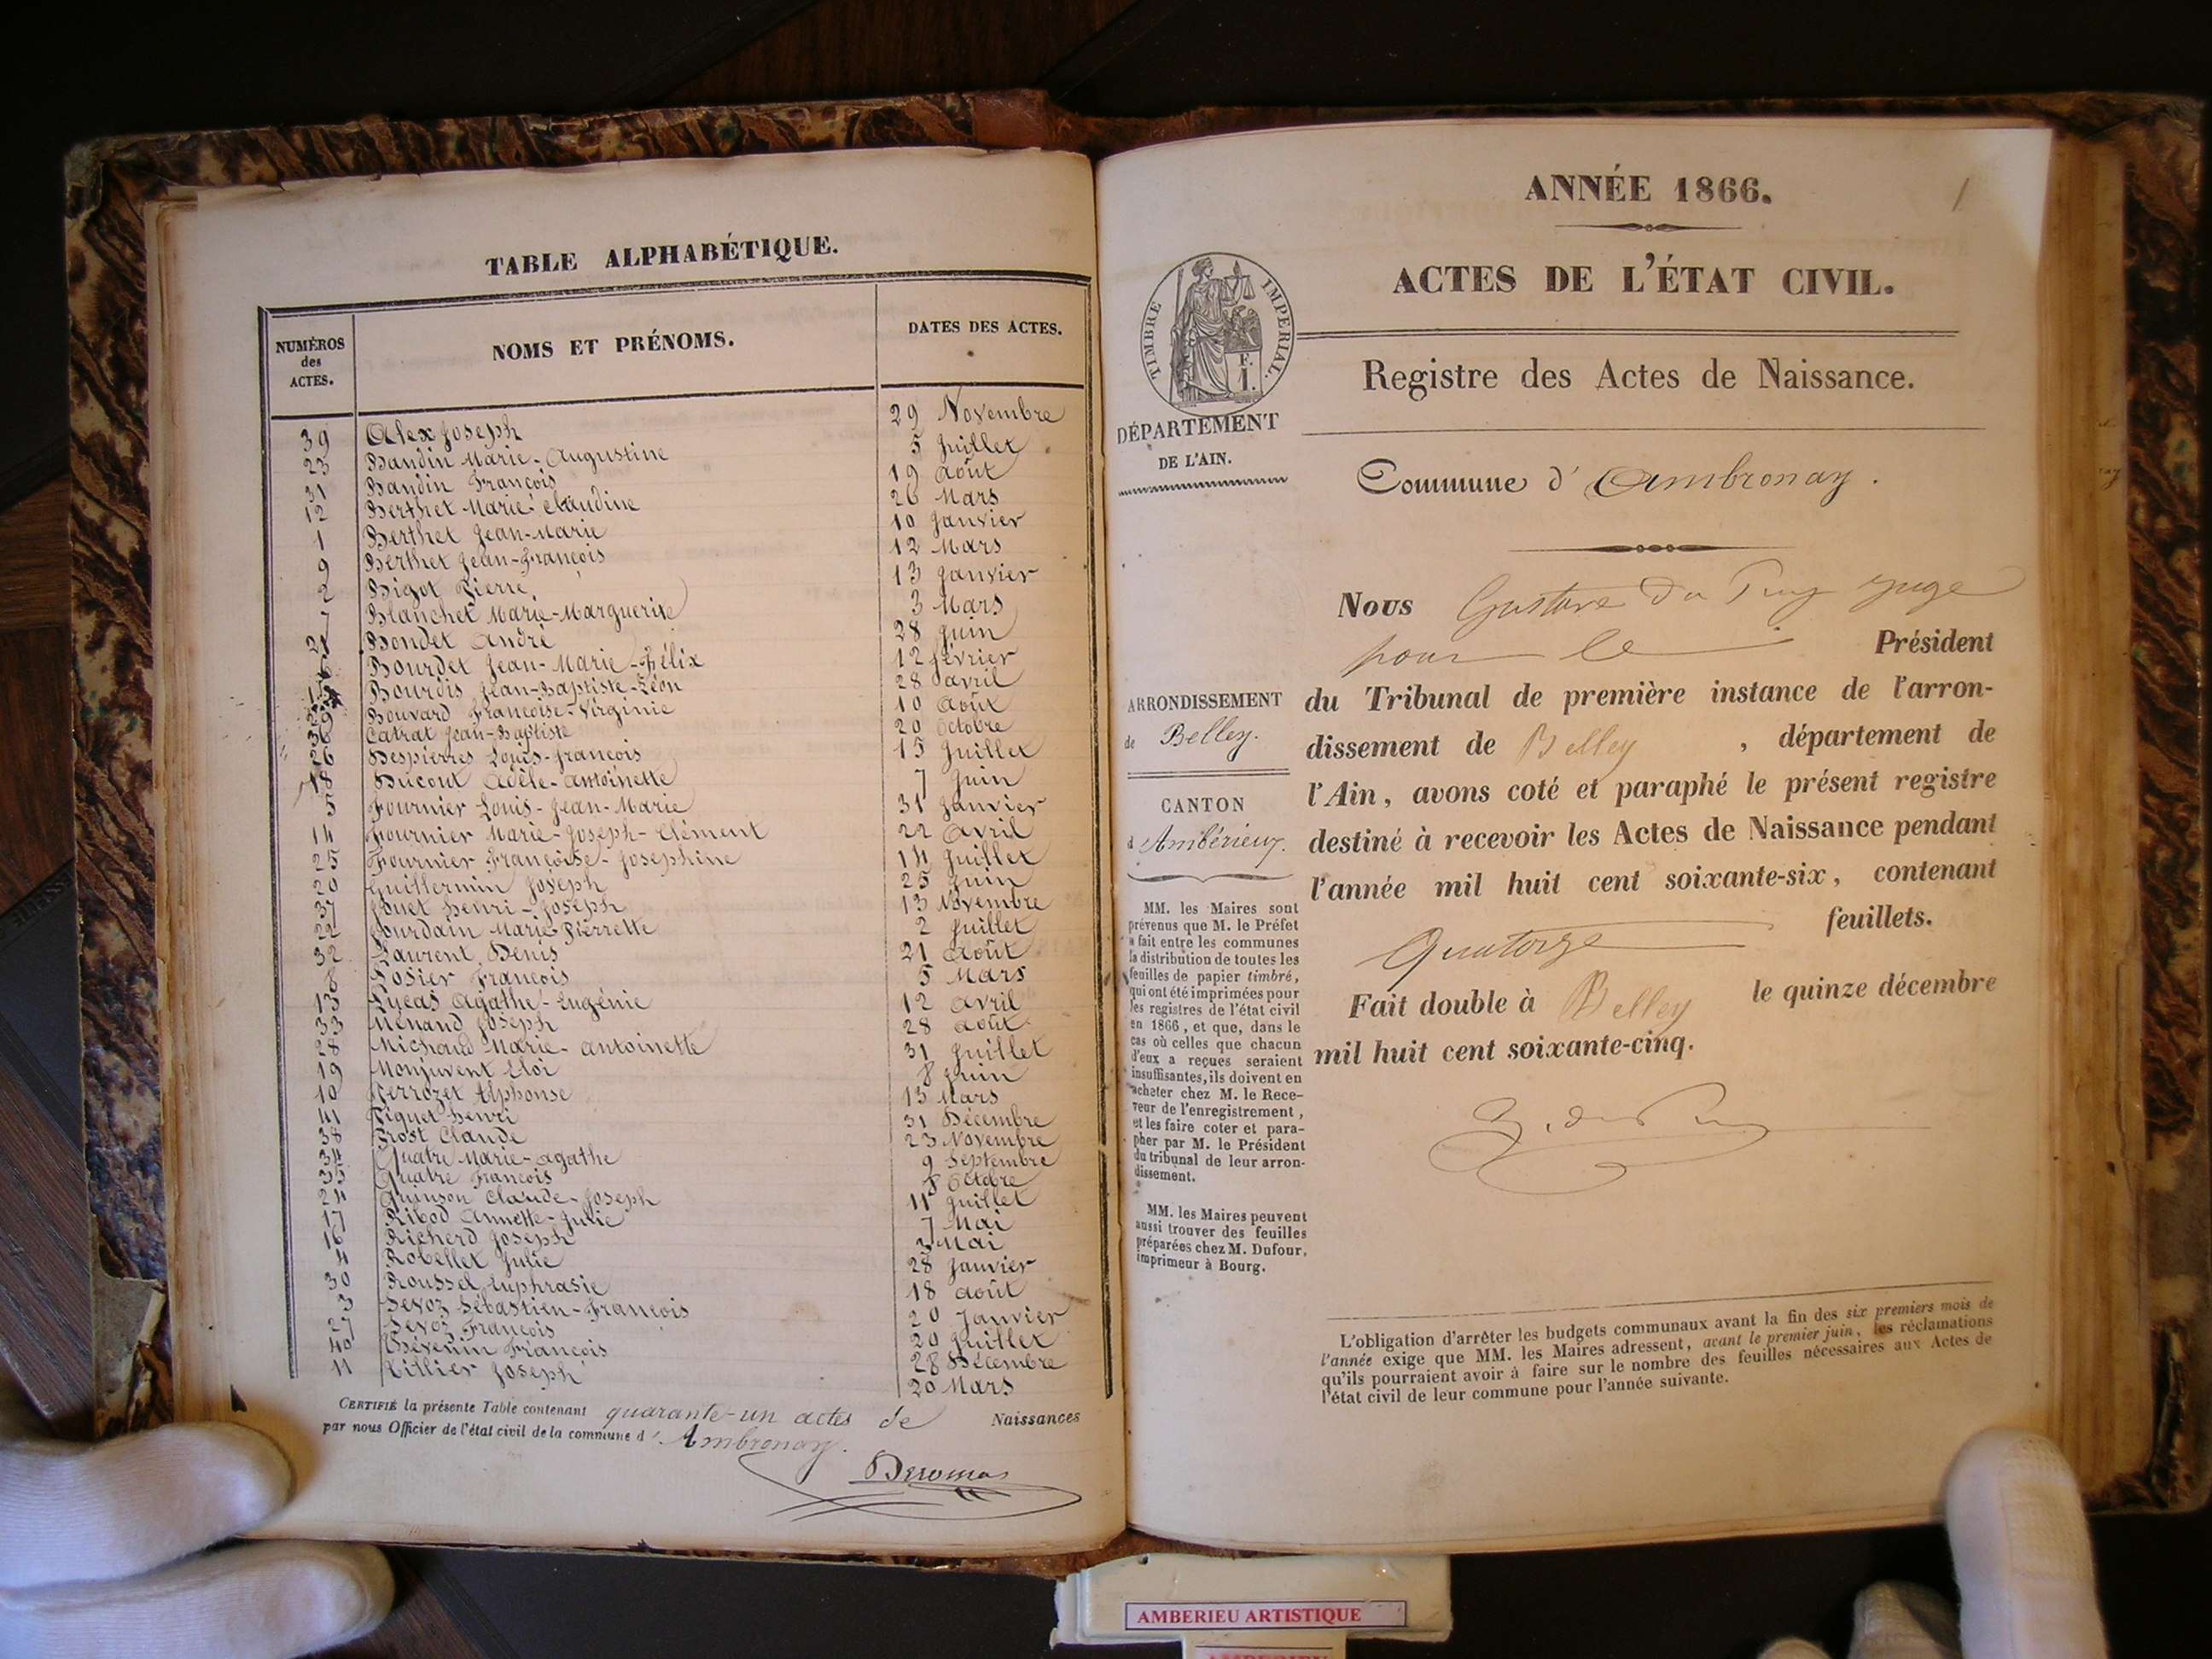 TABLE ALPHABÉTIQUE.
NUMÉROS des ACTES.
NOMS ET PRÉNOMS.
DATES DES ACTES.
39 Alex Joseph 29 Novembre
23 Baudin Marie-Augustine 5 Juillet
31 Baudin François 19 Août
12 Berthet Marie Claudine 26 Mars
1 Berthet Jean-Marie 10 Janvier
9 Berthet Jean-François 12 Mars
2 Bigot Pierre 13 Janvier
7 Blanchet Marie-Marguerite 3 Mars
21 Bondet André 28 Juin
6 Bourdet Jean-Marie-Félix 12 février
15 Bourdis Jean-Baptiste-Léon 28 avril
29 Bouvard Françoise-Virginie 10 Août
36 Catrat Jean-Baptiste 20 Octobre
26 Despierres Louis-françois 15 Juillet
18 Ducout Adèle-Antoinette 7 Juin
5 Fournier Louis-Jean-Marie 31 Janvier
14 Fournier Marie-Joseph-Clément 22 Avril
25 Fournier Françoise-Joséphine 14 Juillet
20 Guillermin Joseph 25 Juin
37 Jouet Henri-Joseph 13 Novembre
22 Jourdain Marie Pierrette 2 Juillet
32 Laurent Denis 21 Août
8 Losier François 5 Mars
13 Lucas Agathe-Eugénie 12 Avril
33 Menand Joseph 28 Août
28 Michaud Marie-Antoinette 31 Juillet
19 Monjuvent Eloi 8 Juin
10 Perrozet Alphonse 13 Mars
41 Piquet Henri 31 Décembre
38 Prost Claude 23 Novembre
34 Quatre Marie-Agathe 9 Septembre
35 Quatre François 8 Octobre
24 Quinson Claude-Joseph 11 Juillet
17 Ribod Annette-Julie 7 Mai
16 Richerd Joseph Mai
4 Robellet Julie 28 Janvier
30 Roussel Euphrasie 18 Août
3 Sevoz Sébastien-François 20 Janvier
27 Sevoz François 20 Juillet
40 Thévenin François 28 Décembre
11 Tillier Joseph 20 Mars
CERTIFIÉ la présente Table contenant quarante-un actes de Naissances
par nous Officier de l'état civil de la commune d'Ambronay.
ANNÉE 1866.
1
ACTES DE L'ÉTAT CIVIL.
TIMBRE IMPÉRIAL.
F.
1.
DÉPARTEMENT
DE L'AIN.
ARRONDISSEMENT
de Belley.
CANTON
d'Ambérieux.
MM. les Maires sont
prévenus que M. le Préfet
a fait entre les communes
la distribution de toutes les
feuilles de papier timbré,
qui ont été imprimées pour
les registres de l'état civil
en 1866, et que, dans le
cas où celles que chacun
d'eux a reçues seraient
insuffisantes, ils doivent en
acheter chez M. le Rece-
veur de l'enregistrement,
et les faire coter et para-
pher par M. le Président
du tribunal de leur arron-
dissement.
MM. les Maires peuvent
aussi trouver des feuilles
préparées chez M. Dufour,
imprimeur à Bourg.
Registre des Actes de Naissance.
Commune d'Ambronay.
Nous Gustave Du Puy juge
pour le Président
du Tribunal de première instance de l'arron-
dissement de Belley, département de
l'Ain, avons coté et paraphé le présent registre
destiné à recevoir les Actes de Naissance pendant
l'année mil huit cent soixante-six, contenant
Quatorze feuillets.
Fait double à Belley le quinze décembre
mil huit cent soixante-cinq.
G. du Puy
L'obligation d'arrêter les budgets communaux avant la fin des six premiers mois de
l'année exige que MM. les Maires adressent, avant le premier juin, les réclamations
qu'ils pourraient avoir à faire sur le nombre des feuilles nécessaires aux Actes de
l'état civil de leur commune pour l'année suivante.
AMBERIEU ARTISTIQUE